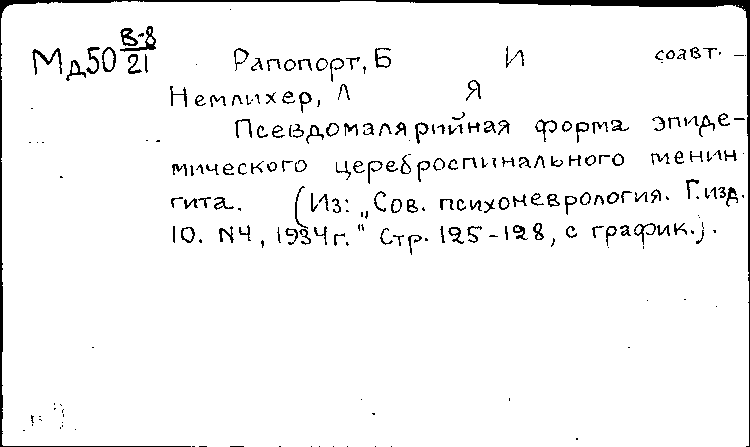 Мд50 В-8/21 Рапопорт, Б И соавт.
Немлихер, Л Я
Псевдомалярийная форма эпиде-
мического цереброспинального менин
гита. (Из: „Сов. психоневрология. Г.изд.
10. N4, 1934г." Стр. 125-128, с график.).